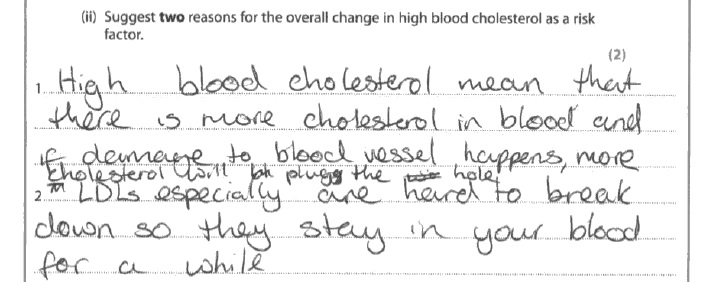 (ii) Suggest two reasons for the overall change in high blood cholesterol as a risk
factor.
(2)
1 High blood cholesterol mean that
there is more cholesterol in blood and
if damage to blood vessel happens, more
cholesterol will plugg the hole
2 LDLs especially are hard to break
down so they stay in your blood
for a while